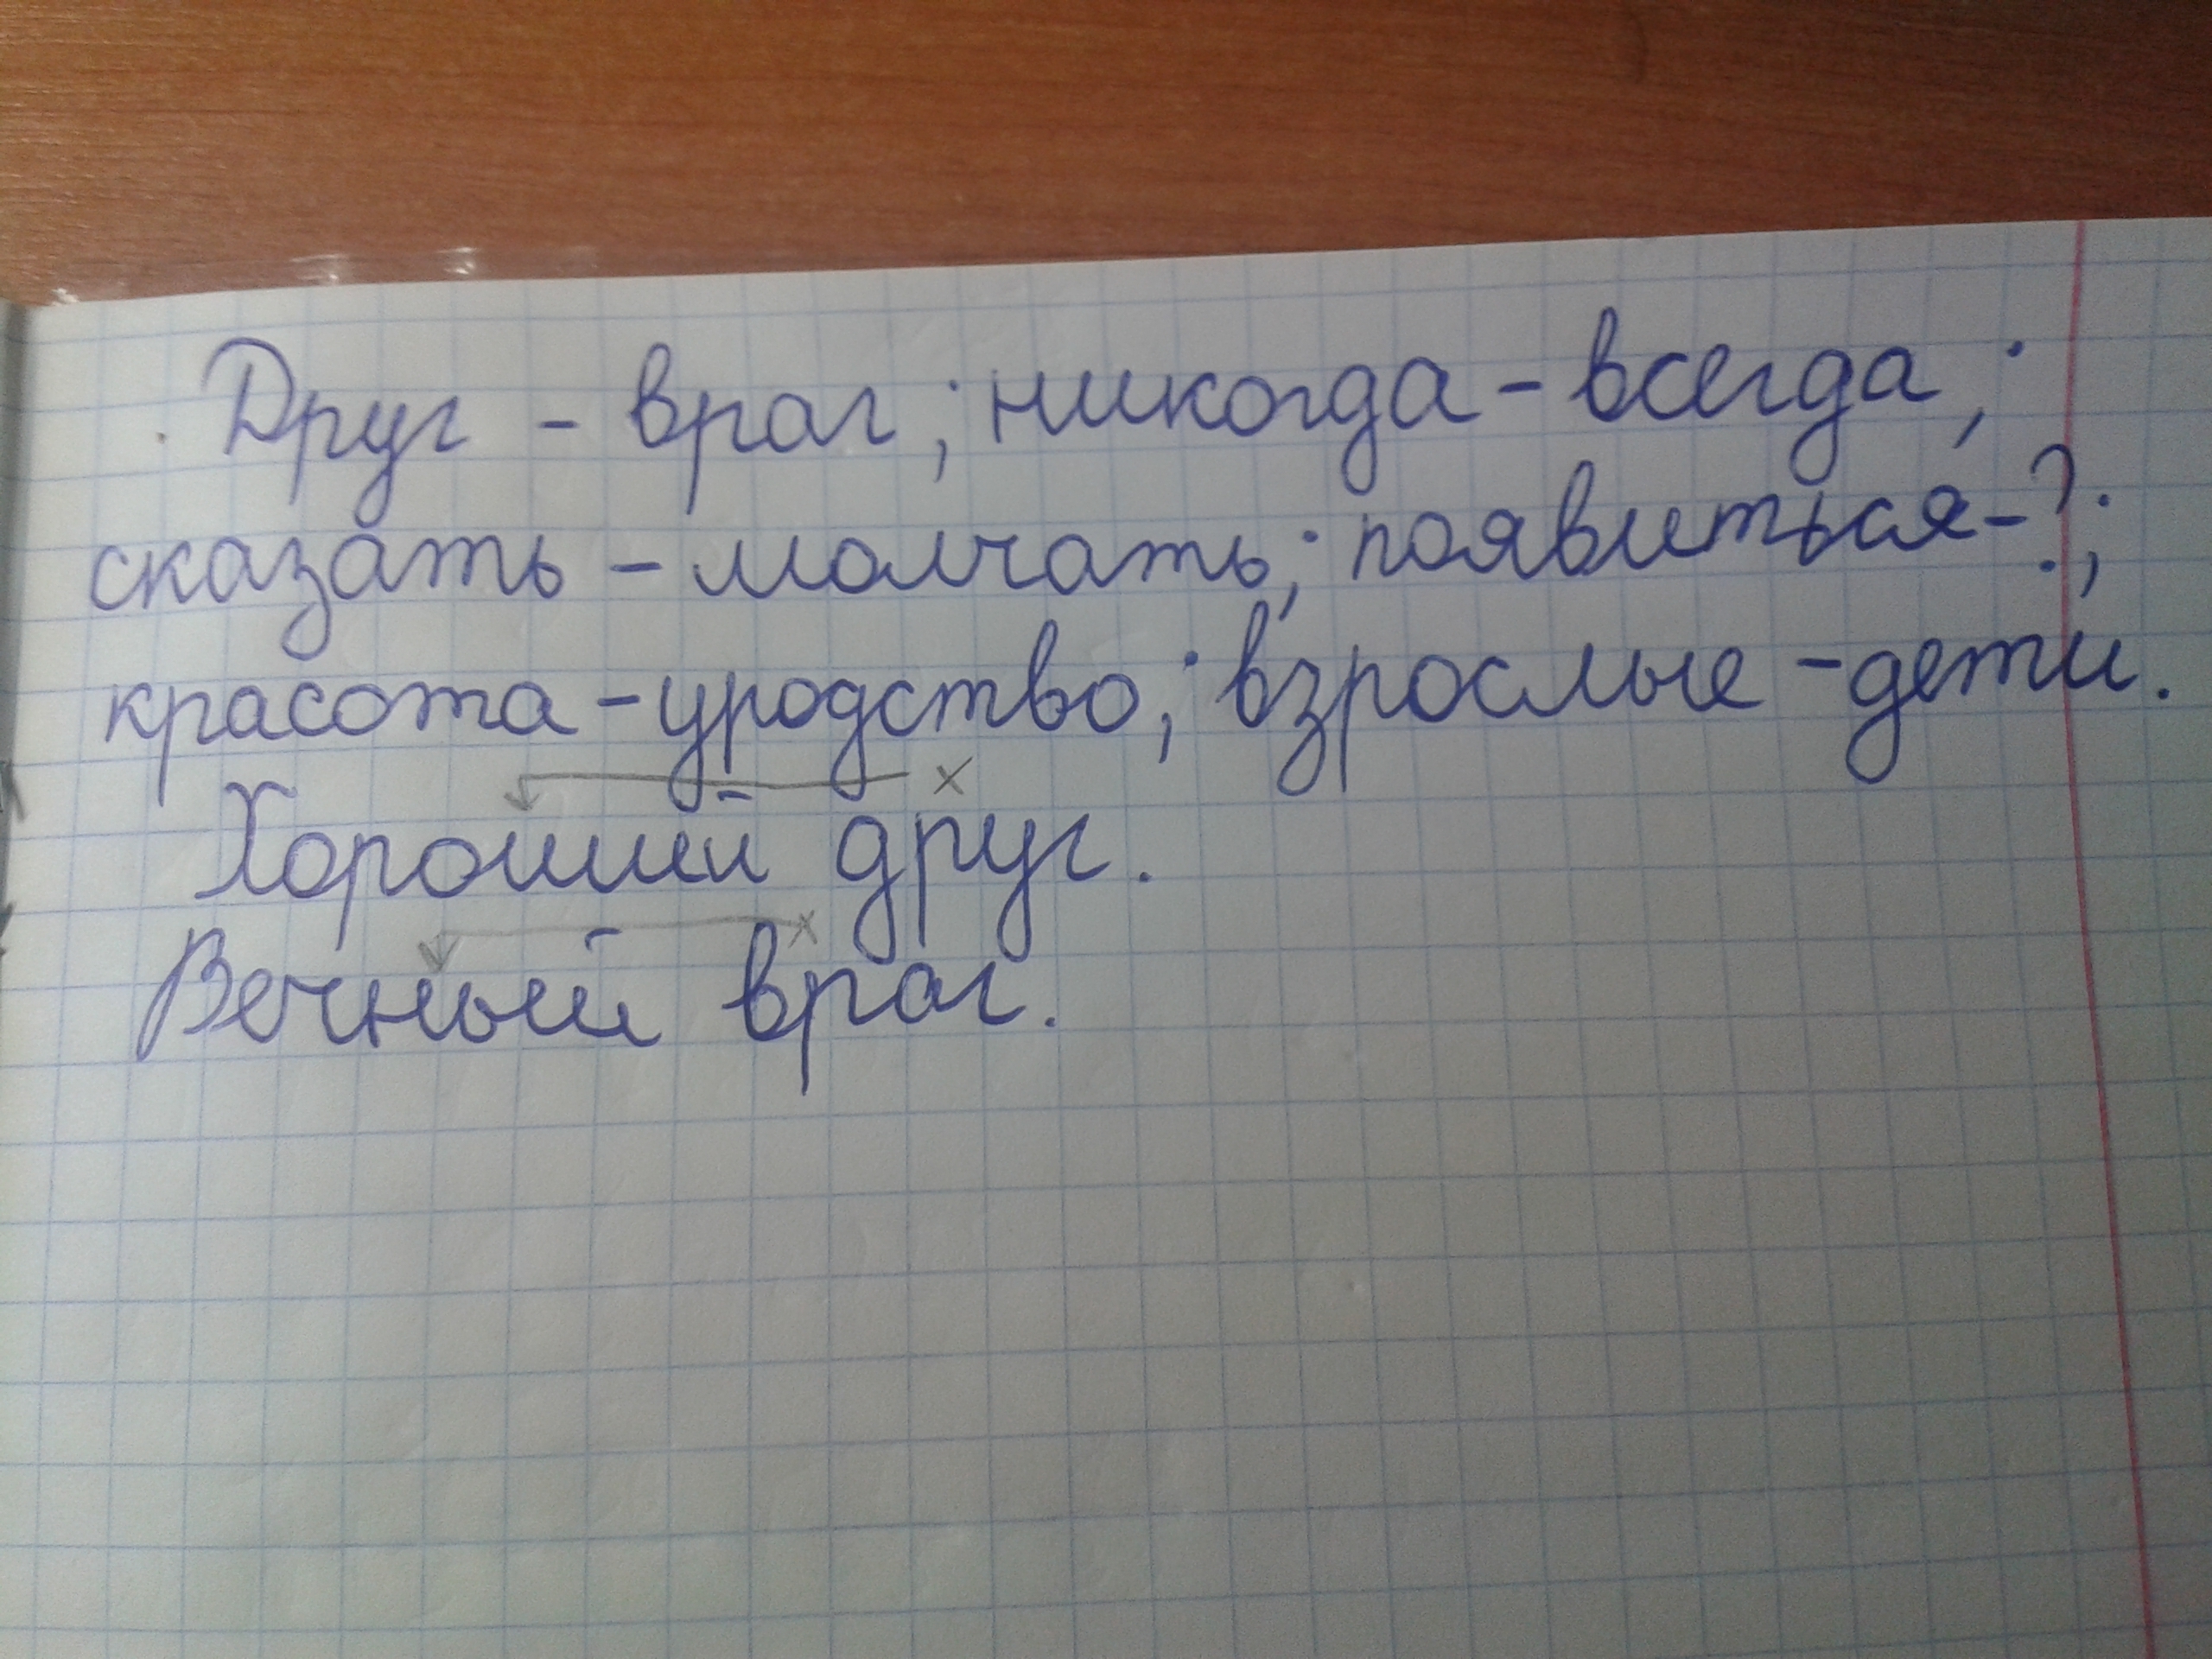 Друг - враг; никогда - всегда;
сказать - молчать; появиться - ?;
красота - уродство; взрослые - дети.
Хороший друг.
Вечный враг.